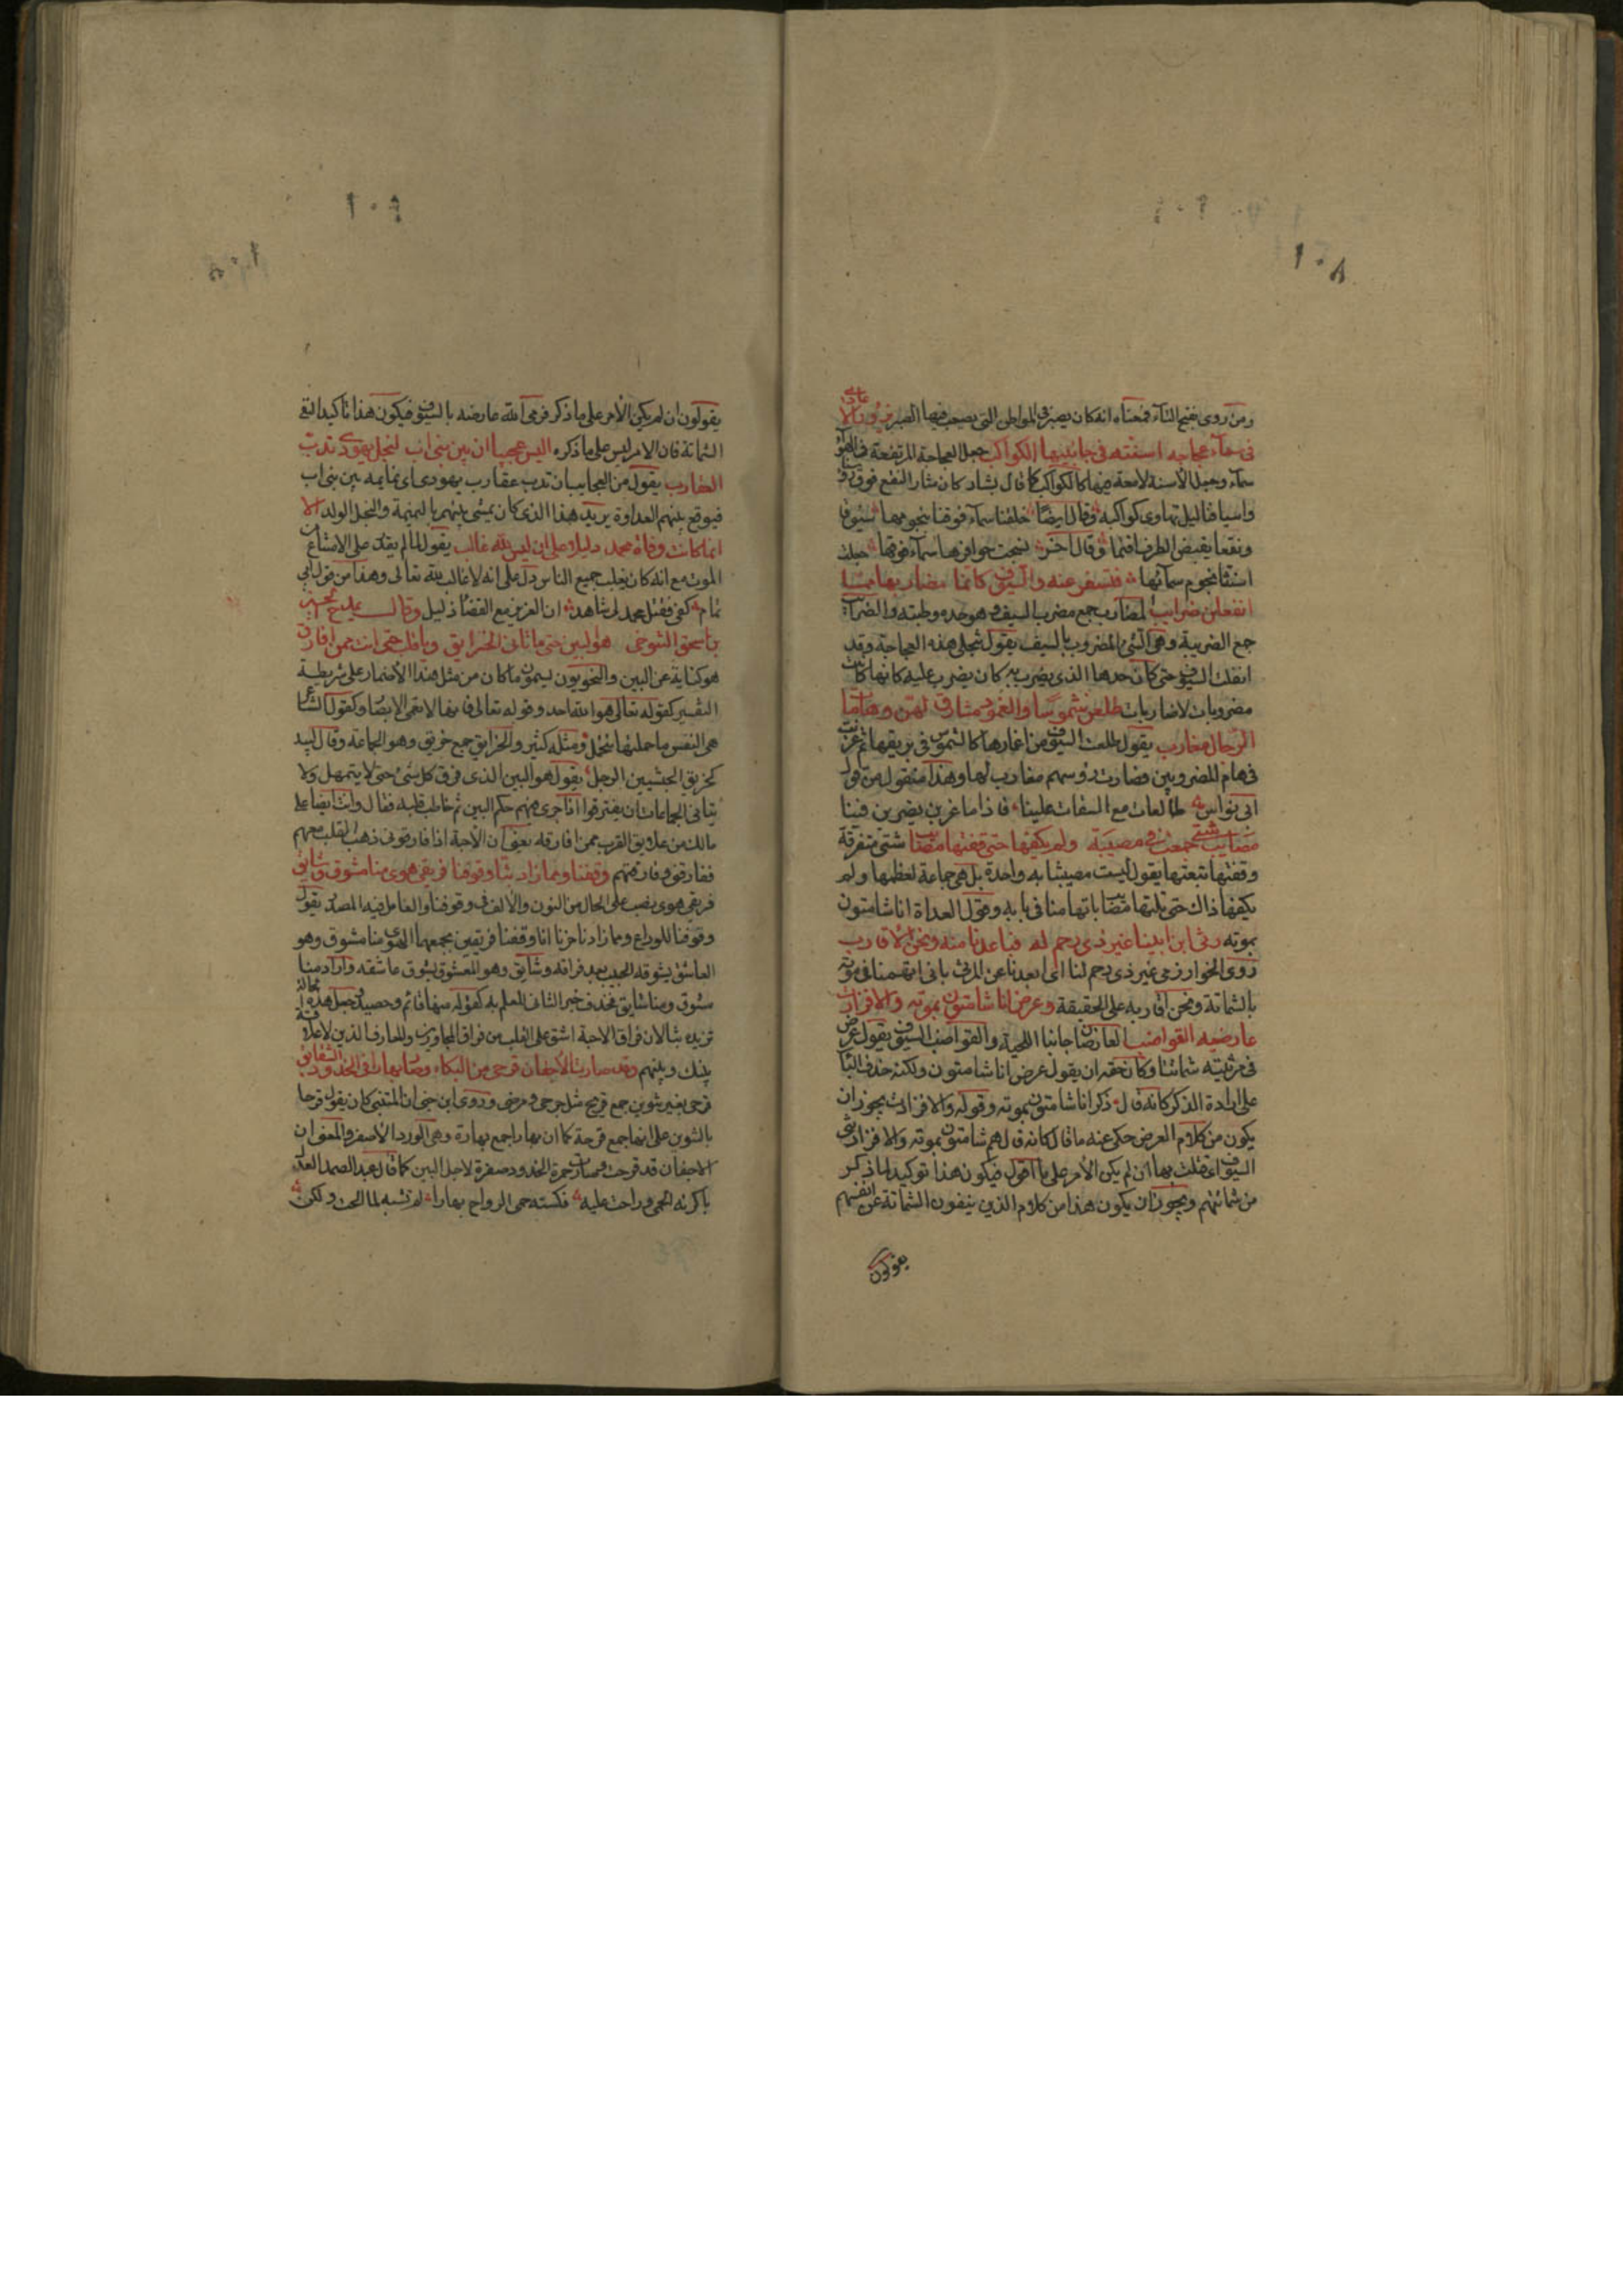 ١٠٨
ومن روى بفتح التاء فمعناه انه كان يصبر في المواطن التي يصعب فيها الصبر يزور الاعادي
في سماء عجاجه اسنته في جانبيها الكواكب جعل العجاجة المرتفعة في الهوا
سماء وجعل الأسنة لامعة فيها كالكواكب كما قال بشار كان مثار النقع فوق رؤسنا
واسيافنا ليل تهاوى كواكبه وقال ايضا خلقنا سماء فوقنا بنجومها سيوفا
ونقعا يقبض الطرف اقتما وقال اخر نسجت حوافرها سماء فوقها جعلت
اسنتنا نجوم سمائها فتسفر عنه والسيوف كانما مضاربها مما
انفللن ضرايب المضارب جمع مضرب السيف وهو حده وظبته والضرايب
جمع الضريبة وهي الشئ المضروب بالسيف يقول تنجلى هذه العجاجة وقد
انفلت السيوف حتى كان حدها الذي يضرب به كان يضرب عليه كانها كانت
مضروبات لا ضاربات طلعن شموسا والغمود مشارق لهن وهامات
الرجال مغارب يقول طلعت السيوف من اغمادها كالشموس في بريقها ثم غربت
في هام المضروبين فصارت رؤسهم مغارب لها وهذا منقول من قول
ابي نواس طالعات مع السقات علينا فاذا ما غربن يغربن فينا
مصايب شتى جمعت في مصيبة ولم يكفها حتى قفتها مصايب شتى متفرقة
وقفتها تبعتها يقول ليست مصيبتنا به واحدة بل هي جماعة لعظمها ولم
يكفها ذاك حتى تلتها مصايب اتهامنا في بابه وقول العداة انا شامتون
بموته رثى ابن ابينا غير ذي رحم له فباعدنا منه ونحن الاقارب
روى الخوارزمي غير ذي رحم لنا اى ابعدنا عن المرثى بانى اتهمنا في موته
بالشماتة ونحن اقاربه على الحقيقة وعرض انا شامتون بموته والا فزارت
عارضيه القواضب العارضا جانبا اللحية والقواضب السيوف يقول عرض
في مرثيته شماتنا وكان حقه ان يقول عرض انا شامتون ولكنه حذف البا
على ارادة الذكر كانه قال ذكر انا شامتون بموته وقوله والا فزارت يجوز ان
يكون من كلام العرض حكى عنه ما قال كانه قال هم شامتون بموته والا فزارتني
السيوف اي قتلت بها ان لم يكن الأمر على ما اقول فيكون هذا توكيدا لما ذكر
من شماتتهم ويجوز ان يكون هذا من كلام الذين ينفون الشماتة عن انفسهم
يقولون
يقولون ان لم يكن الأمر على ما ذكر فرمى الله عارضه بالسيوف فيكون هذا تاكيدا لنفي
الشماتة فان الامر ليس على ما ذكره اليس عجيبا ان بين بني اب لنجل يهودي تدب
العقارب يقول من العجايب ان تدب عقارب يهودي اى نمايمه بين بني اب
فيوقع بينهم العداوة يريد هذا الذي كان يمشى بينهم بالنميمة والنجل الولد الا
انما كانت وفاة محمد دليلا على ان ليس لله غالب يقول لما لم يقدر على الامتناع من
الموت مع انه كان يغلب جميع الناس دل على انه لا غالب لله تعالى وهذا من قول ابي
تمام كفى فقتل محمد لى شاهد ان العزيز مع القضاء ذليل وقال يمدح الحسين
بن اسحق التنوخي هو البين حتى ما تانى الحزايق ويا قلب حتى انت ممن افارق
هو كناية عن البين والنحويون يسمون ما كان من مثل هذا الأضمار على شريطة
التفسير كقوله تعالى هو الله احد وقوله تعالى فانها لا تعمى الابصار وكقول الشاعر
هي النفس ما حملتها تتحمل ومثله كثير والحزايق جمع حزيق وهو الجماعة وقال لبيد
كحزيق الحبشيين الزجل يقول هو البين الذي فرق كل شئ حتى لا يتمهل ولا
يتانى الجماعات ان يفترقوا اذا جرى فيهم حكم البين ثم خاطب قلبه فقال وانت ايضا على
مالك من علايق القرب ممن افارقه يعني ان الأحبة اذا فارقوني ذهب القلب معهم
ففارقني وفارقتهم وقفنا ومما زاد بثا وقوفنا فريقي هوى منا مشوق وشايق
فريقي هوى نصب على الحال من النون والألف في وقوفنا والعامل فيه المصدر يقول
وقوفنا للوداع ومما زادنا حزنا انا وقفنا فريقين يجمعهما الهوى منا مشوق وهو
العاشق يشوقه الحبيب بعد فراقه وشايق وهو المعشوق يشوق عاشقه واراد منا
مشوق ومنا شايق فحذف خبر الثاني للعلم به كقوله منها قائم وحصيد وجعل هذه الحالة
تزيده بثا لان فراق الاحبة اشق على القلب من فراق المجاورين والمعارف الذين لا علاقة
بينك وبينهم وقد صارت الأجفان قرحى من البكاء وصار بهارا في الخدود الشقايق
قرحى بغير تنوين جمع قريح مثل جرحى ومرضى وروى ابن جني ان المتنبي كان يقول قرحا
بالتنوين على انها جمع قرحة كما ان بهارا جمع بهارة وهي الورد الأصفر والمعنى ان
الاجفان قد قرحت وصارت حمرة الخدود صفرة لاجل البين كما قال عبد الصمد المعذل
باكرته الحمى وراحت عليه فكسته حمى الرواح بهارا لم تشنه لما الحت ولكن